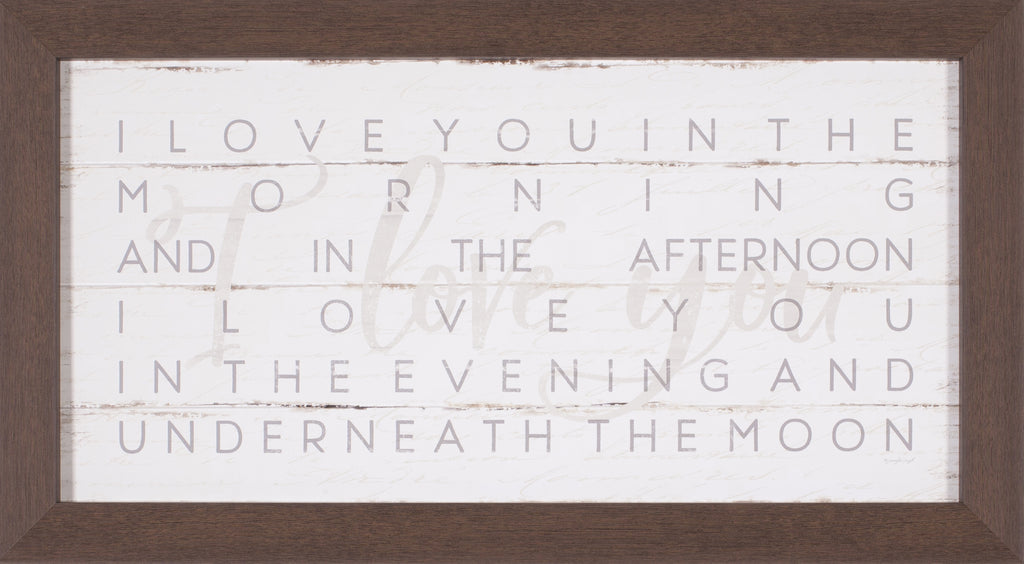 I LOVE YOU IN THE
MORNING
AND IN THE AFTERNOON
I LOVE YOU
IN THE EVENING AND
UNDERNEATH THE MOON
I love you